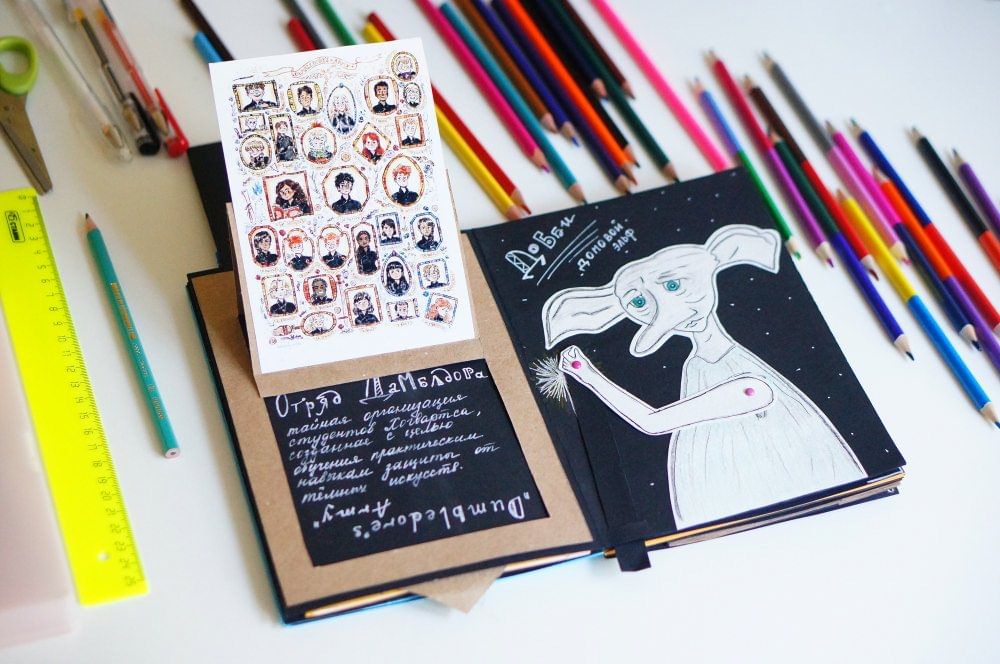 Отряд Дамблдора
тайная организация
студентов Хогвартса,
созданная с целью
обучения практическим
навыкам защиты от
тёмных искусств.
"Dumbledore's
Army"
Добби
домовой
эльф